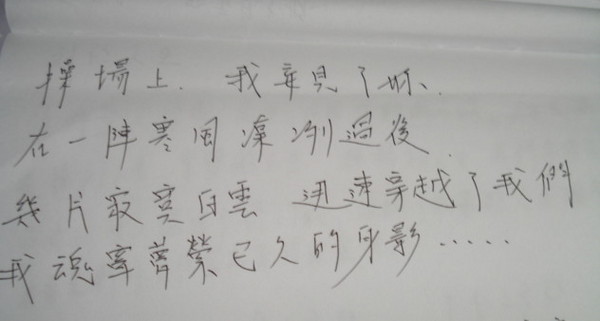 操場上，我牽見了妳、
在一陣寒風凜冽過後
幾片寂寞白雲 迅速穿越了我們
我魂牽夢縈已久的身影……